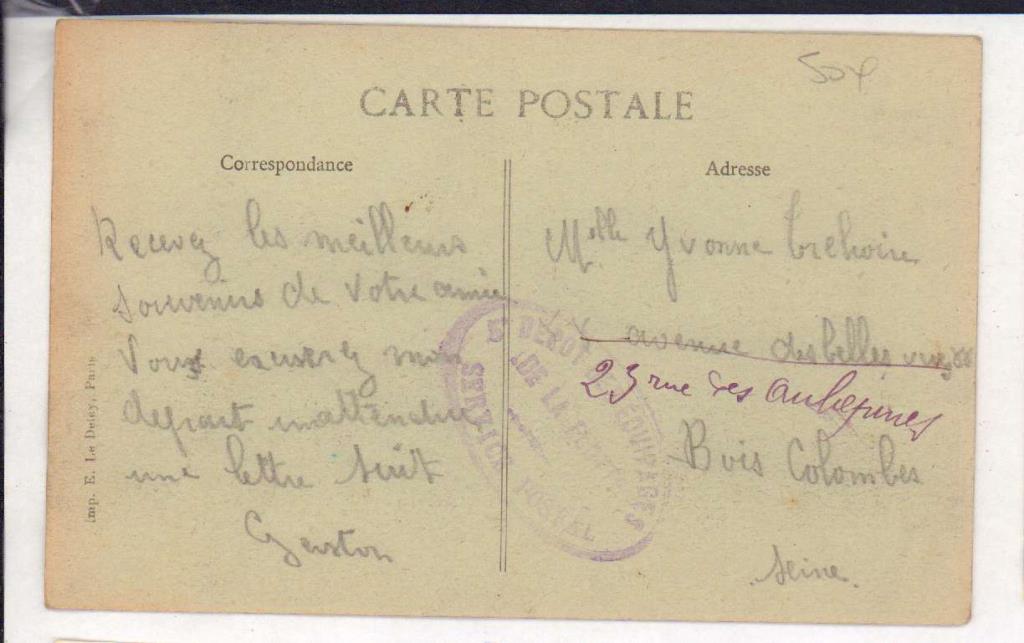 CARTE POSTALE
Correspondance
Recevez les meilleurs
souvenirs de votre amie
Vous excuserez mon
depart inattendu
une lettre suit
Gaston
Adresse
Melle Yvonne Trehoire
avenue des belles vues
23 rue des aubepines
Bois Colombes
Seine.
5e DEPOT DES EQUIPAGES
DE LA FLOTTE
SERVICE POSTAL
Imp. E. Le Deley, Paris